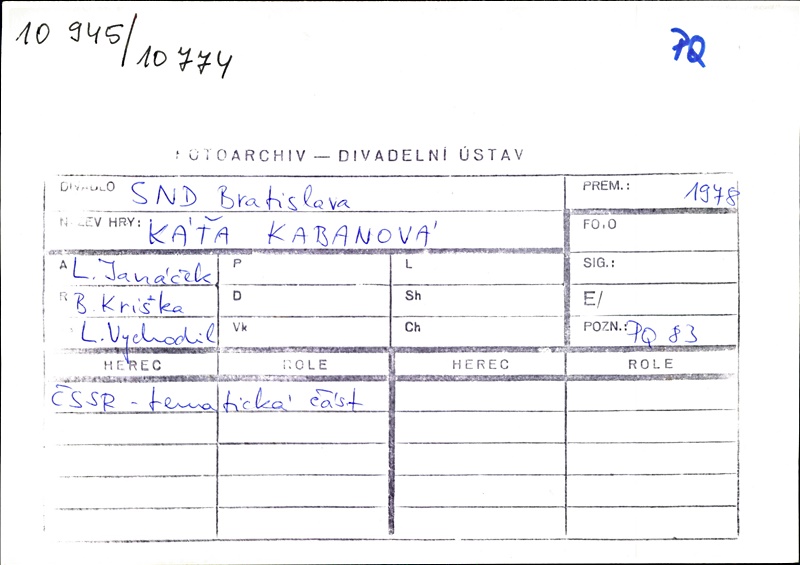 10 945/10 774
PQ
FOTOARCHIV — DIVADELNÍ ÚSTAV
DIVADLO SND Bratislava
PREM.: 1978
NÁZEV HRY: KÁŤA KABANOVÁ
FOTO
A L. Janáček P L SIG.:
R B. Kriška D Sh E/
L. Vychodil Vk Ch POZN.: PQ 83
HEREC ROLE HEREC ROLE
ČSSR - tematická část